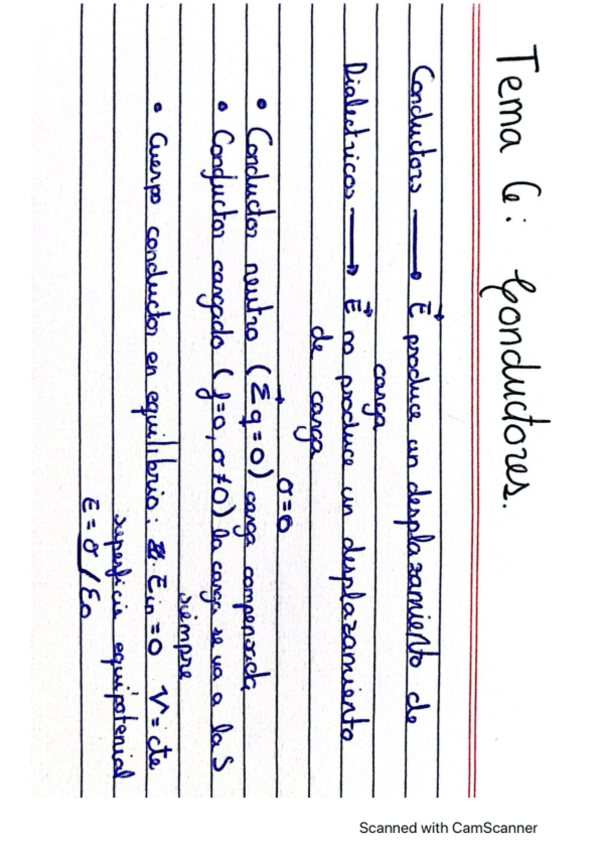 Tema 6: Conductores.
Conductors → E⃗ produce un desplazamiento de
carga
Dialectricos → E⃗ no produce un desplazamiento
de carga
σ=0
• Conductor neutro (Σq⃗=0) carga compensada
• Conductor cargado (ρ=0, σ≠0) la carga se va a la S
siempre
• Cuerpo conductor en equilibrio: E in=0 V=cte
superficie equipotenial
E=σ/ε0
Scanned with CamScanner